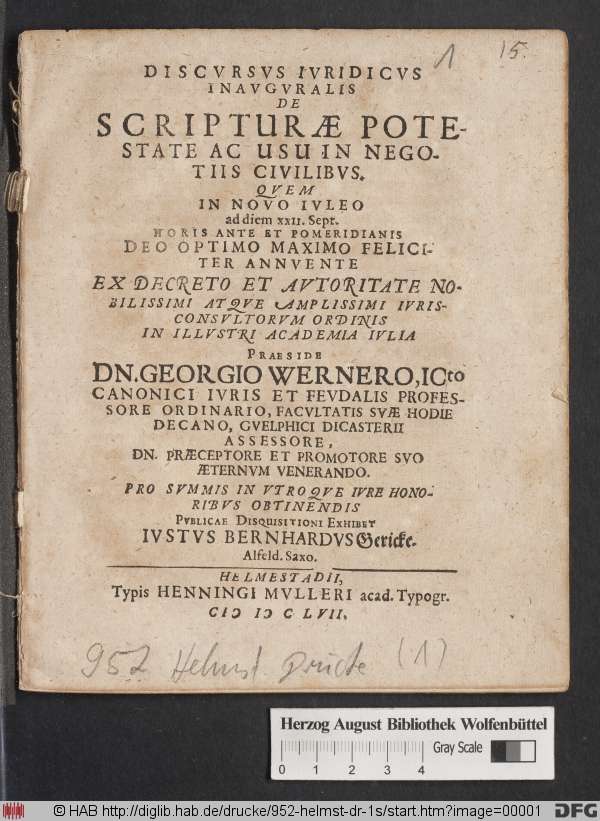 1 15.
DISCVRSVS IVRIDICVS
INAVGVRALIS
DE
SCRIPTURÆ POTE-
STATE AC USU IN NEGO-
TIIS CIVILIBVS.
QVEM
IN NOVO IVLEO
ad diem XXII. Sept.
HORIS ANTE ET POMERIDIANIS
DEO OPTIMO MAXIMO FELICI-
TER ANNVENTE
EX DECRETO ET AVTORITATE NO-
BILISSIMI ATQVE AMPLISSIMI IVRIS-
CONSVLTORVM ORDINIS
IN ILLVSTRI ACADEMIA IVLIA
PRAESIDE
DN. GEORGIO WERNERO, ICto
CANONICI IVRIS ET FEVDALIS PROFES-
SORE ORDINARIO, FACVLTATIS SVÆ HODIE
DECANO, GVELPHICI DICASTERII
ASSESSORE,
DN. PRÆCEPTORE ET PROMOTORE SVO
ÆTERNVM VENERANDO.
PRO SVMMIS IN VTROQVE IVRE HONO-
RIBVS OBTINENDIS
PVBLICAE DISQVISITIONI EXHIBET
IVSTVS BERNHARDVS Gericke.
Alfeld. Saxo.
HELMESTADII,
Typis HENNINGI MVLLERI acad. Typogr.
CIↃ IↃ C LVII.
952 Helmst. Drucke (1)
Herzog August Bibliothek Wolfenbüttel
Gray Scale
0 1 2 3 4
© HAB http://diglib.hab.de/drucke/952-helmst-dr-1s/start.htm?image=00001 DFG